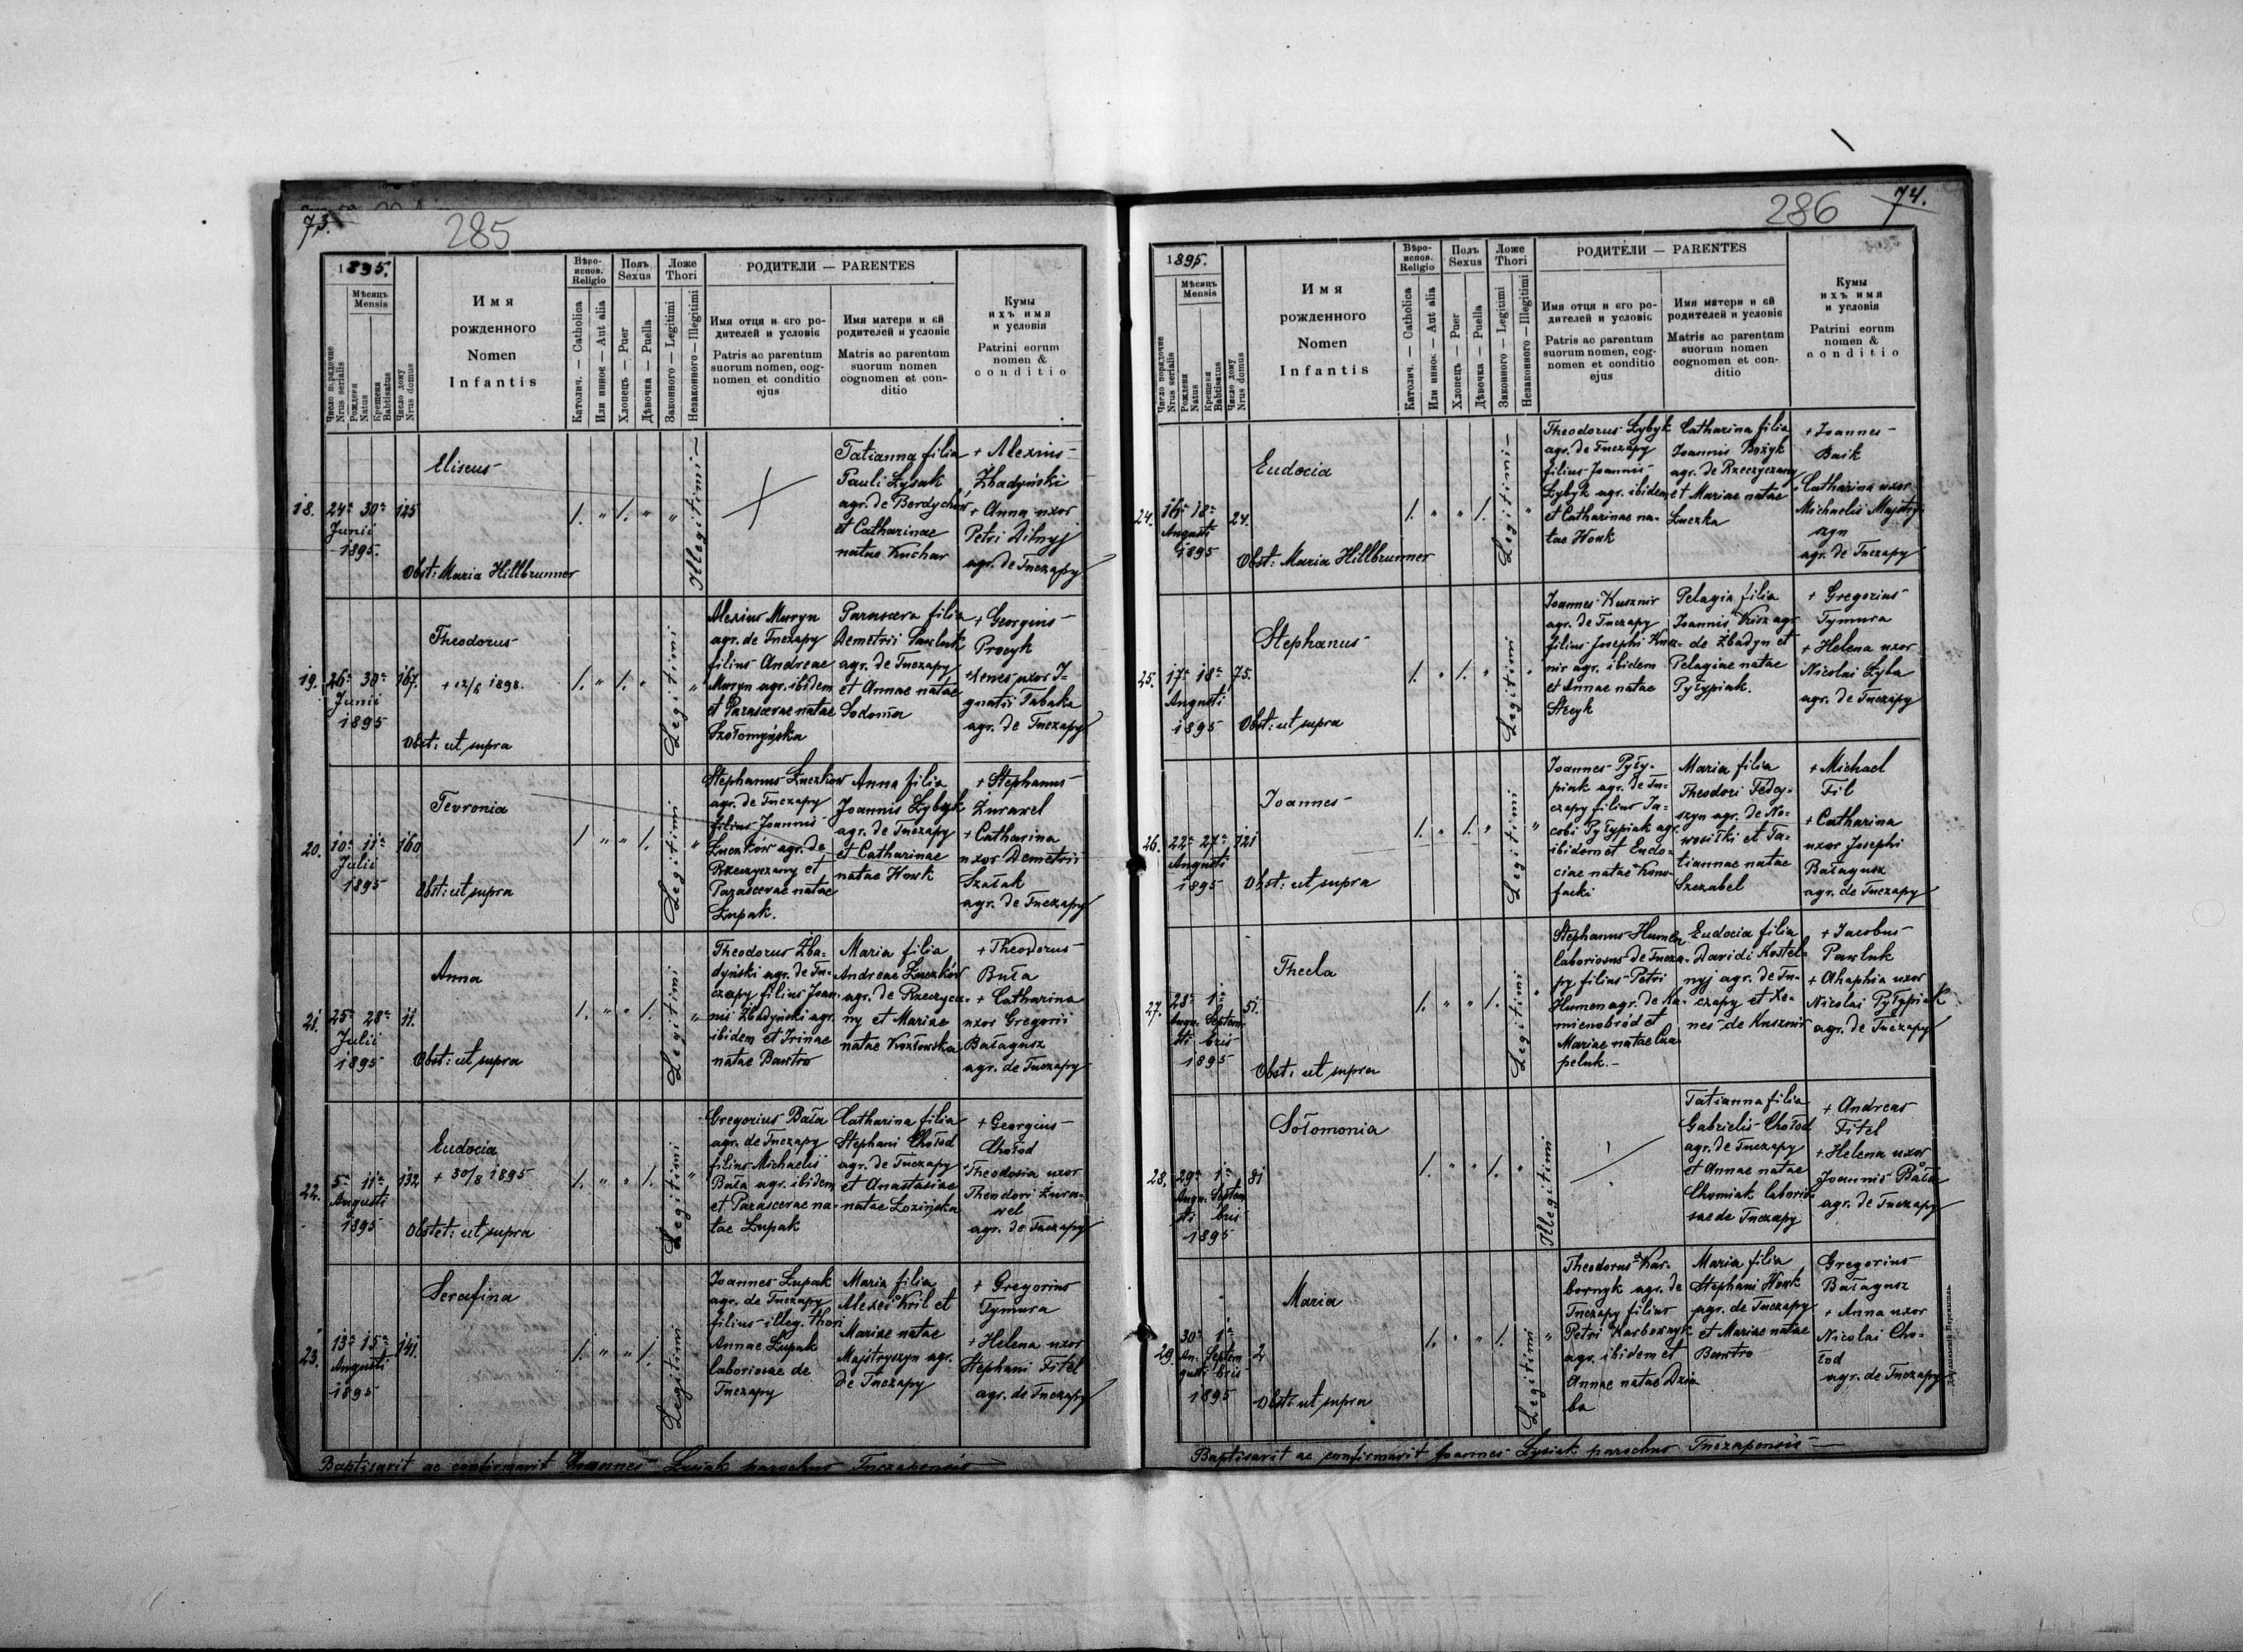 73.
285
1895.
Мѣсяць
Mensis
Число порядочне
Nrus serialis
Рожденя
Natus
Крещеня
Babtisatus
Число дому
Nrus domus
Имя
рожденного
Nomen
Infantis
Вѣро-
испов.
Religio
Католич. — Catholica
Или инное — Aut alia
Полъ
Sexus
Хлопецъ — Puer
Дѣвочка — Puella
Ложе
Thori
Законного — Legitimi
Незаконного — Illegitimi
РОДИТЕЛИ — PARENTES
Имя отця и єго ро-
дителей и условіє
Patris ac parentum
suorum nomen, cog-
nomen et conditio
ejus
Имя матери и єй
родителей и условіє
Matris ac parentum
suorum nomen
cognomen et con-
ditio
Кумы
ихъ имя
и условія
Patrini eorum
nomen &
conditio
18.
24ª 30ª
Junii
1895.
125
Eliseus
Obst: Maria Hillbrunner
/. " /. " "
Illegitimi
Tatianna filia
Pauli Łysak
agr. de Bordychów
et Catharinae
natae Kuchar
+ Alexius
Zbadyński
+ Anna uxor
Petri Dilnyj
agr. de Tuczapy
19.
26ª 30ª
Junii
1895
167.
Theodorus
+ 12/8 1898.
Obst: ut supra
/. " /. "
Legitimi
"
Alexius Muryn
agr. de Tuczapy
filius Andreae
Muryn agr. ibidem
et Parascevae natae
Szołomyńska
Parasceva filia
Demetrii Pawluk
agr. de Tuczapy
et Annae natae
Sodoma
+ Georgius
Procyk
+ Agnes uxor I-
gnatii Tabaka
agr. de Tuczapy
20.
10ª 11ª
Julii
1895
160
Fevronia
Obst: ut supra
/ " " /.
Legitimi
"
Stephanus Łuczkow
agr. de Tuczapy
filius Joannis
Łuczkow agr. de
Rzeczyczany et
Parascevae natae
Łupak.
Anna filia
Joannis Łybyk
agr. de Tuczapy
et Catharinae
natae Howk
+ Stephanus
Żurawel
+ Catharina
uxor Demetrii
Szałak
agr. de Tuczapy
21.
25ª 28ª
Julii
1895
11.
Anna
Obst: ut supra
/. " " /.
Legitimi
"
Theodorus Zba-
dyński agr. de Tu-
czapy filius Joan-
nis Zbadyński agr.
ibidem et Irinae
natae Bawtro
Maria filia
Andreae Łuczków
agr. de Rzeczycza-
ny et Mariae
natae Kozłowska
+ Theodorus
Buła
+ Catharina
uxor Gregorii
Bałagusz
agr. de Tuczapy
22.
5ª 11ª
Augusti
1895
132
Eudocia
+ 30/8 1895
Obstet: ut supra
/. " " /.
Legitimi
"
Gregorius Bała
agr. de Tuczapy
filius Michaelis
Bała agr. ibidem
et Parascevae na-
tae Łupak
Catharina filia
Stephani Chołod
agr. de Tuczapy
et Anastasiae
natae Łozińska
+ Georgius
Chołod
+ Theodosia uxor
Theodori Żura-
wel
agr. de Tuczapy
23.
13ª 15ª
Augusti
1895
141.
Serafina
/. " " /.
Legitimi
Joannes Łupak
agr. de Tuczapy
filius illeg. thori
Annae Łupak
laboriosae de
Tuczapy
Maria filia
Alexei Kril et
Mariae natae
Majstryszyn agr.
de Tuczapy
+ Gregorius
Tymura
+ Helena uxor
Stephani Fitel
agr. de Tuczapy
Baptisavit ac confirmavit Joannes Łysiak parochus Tuczapensis
286
74.
1895.
Мѣсяць
Mensis
Число порядочне
Nrus serialis
Рожденя
Natus
Крещеня
Babtisatus
Число дому
Nrus domus
Имя
рожденного
Nomen
Infantis
Вѣро-
испов.
Religio
Католич. — Catholica
Или инноє — Aut alia
Полъ
Sexus
Хлопецъ — Puer
Дѣвочка — Puella
Ложе
Thori
Законного — Legitimi
Незаконного — Illegitimi
РОДИТЕЛИ — PARENTES
Имя отця и єго ро-
дителей и условіє
Patris ac parentum
suorum nomen, cog-
nomen et conditio
ejus
Имя матери и єй
родителей и условіє
Matris ac parentum
suorum nomen
cognomen et con-
ditio
Кумы
ихъ имя
и условія
Patrini eorum
nomen &
conditio
24.
16ª 18ª
Augusti
1895
24.
Eudocia
Obst: Maria Hillbrunner
/. " " /.
Legitimi
"
Theodorus Łybyk
agr. de Tuczapy
filius Joannis
Łybyk agr. ibidem
et Catharinae na-
tae Howk
Catharina filia
Joannis Bożyk
agr. de Rzeczyczany
et Mariae natae
Łuczka
+ Joannes
Baik
+ Catharina uxor
Michaelis Majstry-
szyn
agr. de Tuczapy
25.
17ª 18ª
Augusti
1895
75.
Stephanus
Obst: ut supra
/. " /. "
Legitimi
"
Joannes Kusznir
agr. de Tuczapy
filius Josephi Kusz-
nir agr. ibidem
et Annae natae
Stecyk
Pelagia filia
Joannis Kisz agr.
de Zbadyn et
Pelagiae natae
Pyłypiak.
+ Gregorius
Tymura
+ Helena uxor
Nicolai Zyla
agr. de Tuczapy
26.
22ª 27ª
Augusti
1895
121
Joannes
Obst: ut supra
/. " /. "
Legitimi
"
Joannes Pyły-
piak agr. de Tu-
czapy filius Ja-
cobi Pyłypiak agr.
ibidem et Eudo-
ciae natae Kono-
facki
Maria filia
Theodori Fedey-
szyn agr. de No-
wosiłki et Ta-
tiannae natae
Szczabel
+ Michael
Fil
+ Catharina
uxor Josephi
Bałagusz
agr. de Tuczapy
27.
28ª 1ª
Augu- Septem-
sti bris
1895
51.
Thecla
Obst: ut supra
/. " " /.
Legitimi
"
Stephanus Humen
laboriosus de Tucza-
py filius Petri
Humen agr. de Ka-
mienobród et
Mariae natae Cza-
peluk.
Eudocia filia
Davidi Kostel-
nyj agr. de Tu-
czapy et Xe-
nes de Kusznir
+ Jacobus
Pawluk
+ Ahaphia uxor
Nicolai Pyłypiak
agr. de Tuczapy
28.
29ª 1ª
Augu- Septem-
sti bris
1895
81
Sołomonia
/. " " /. "
Illegitimi
Tatianna filia
Gabrielis Chołod
agr. de Tuczapy
et Annae natae
Chomiak laborio-
sae de Tuczapy
+ Andreas
Fitel
+ Helena uxor
Joannis Bała
agr. de Tuczapy
29.
30ª 1ª
Au- Septem-
gusti bris
1895
2
Maria
Obst: ut supra
/. " " /.
Legitimi
"
Theodorus Kar-
bownyk agr. de
Tuczapy filius
Petri Karbownyk
agr. ibidem et
Annae natae Dziu-
ba
Maria filia
Stephani Howk
agr. de Tuczapy
et Mariae natae
Bawtro
Gregorius
Bałagusz
+ Anna uxor
Nicolai Cho-
łod
agr. de Tuczapy
Baptisavit ac confirmavit Joannes Łysiak parochus Tuczapensis